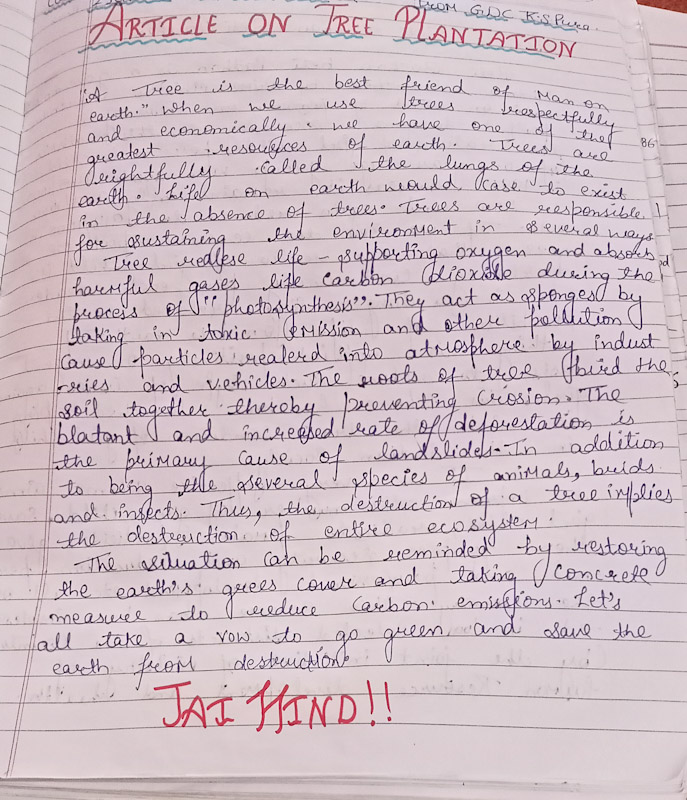 FROM GDC R.S Pura
ARTICLE ON TREE PLANTATION
"A Tree is the best friend of Man on
earth." When we use trees respectfully
and economically. we have one of the
greatest resources of earth. Trees are
rightfully called the lungs of the
earth. Life on earth would case to exist
in the absence of trees. Trees are responsible
for sustaining the environment in several ways
Tree realese life-supporting oxygen and absorb
harmful gases life carbon dioxide during the
process of "photosynthesis". They act as sponges by
taking in toxic emission and other pollution
cause particles realerd into atmosphere by indust
-ries and vehicles. The roots of tree bird the
soil together thereby preventing crosion. The
blatant and increased rate of deforestation is
the primary cause of landslides. In addition
to being the several species of animals, brids
and insects. Thus, the destruction of a tree implies
the destruction of entire ecosystem.
The situation can be reminded by restoring
the earth's grees cover and taking concrete
measure to reduce carbon emissions. Let's
all take a vow to go green and save the
earth from destruction.
JAI HIND!!